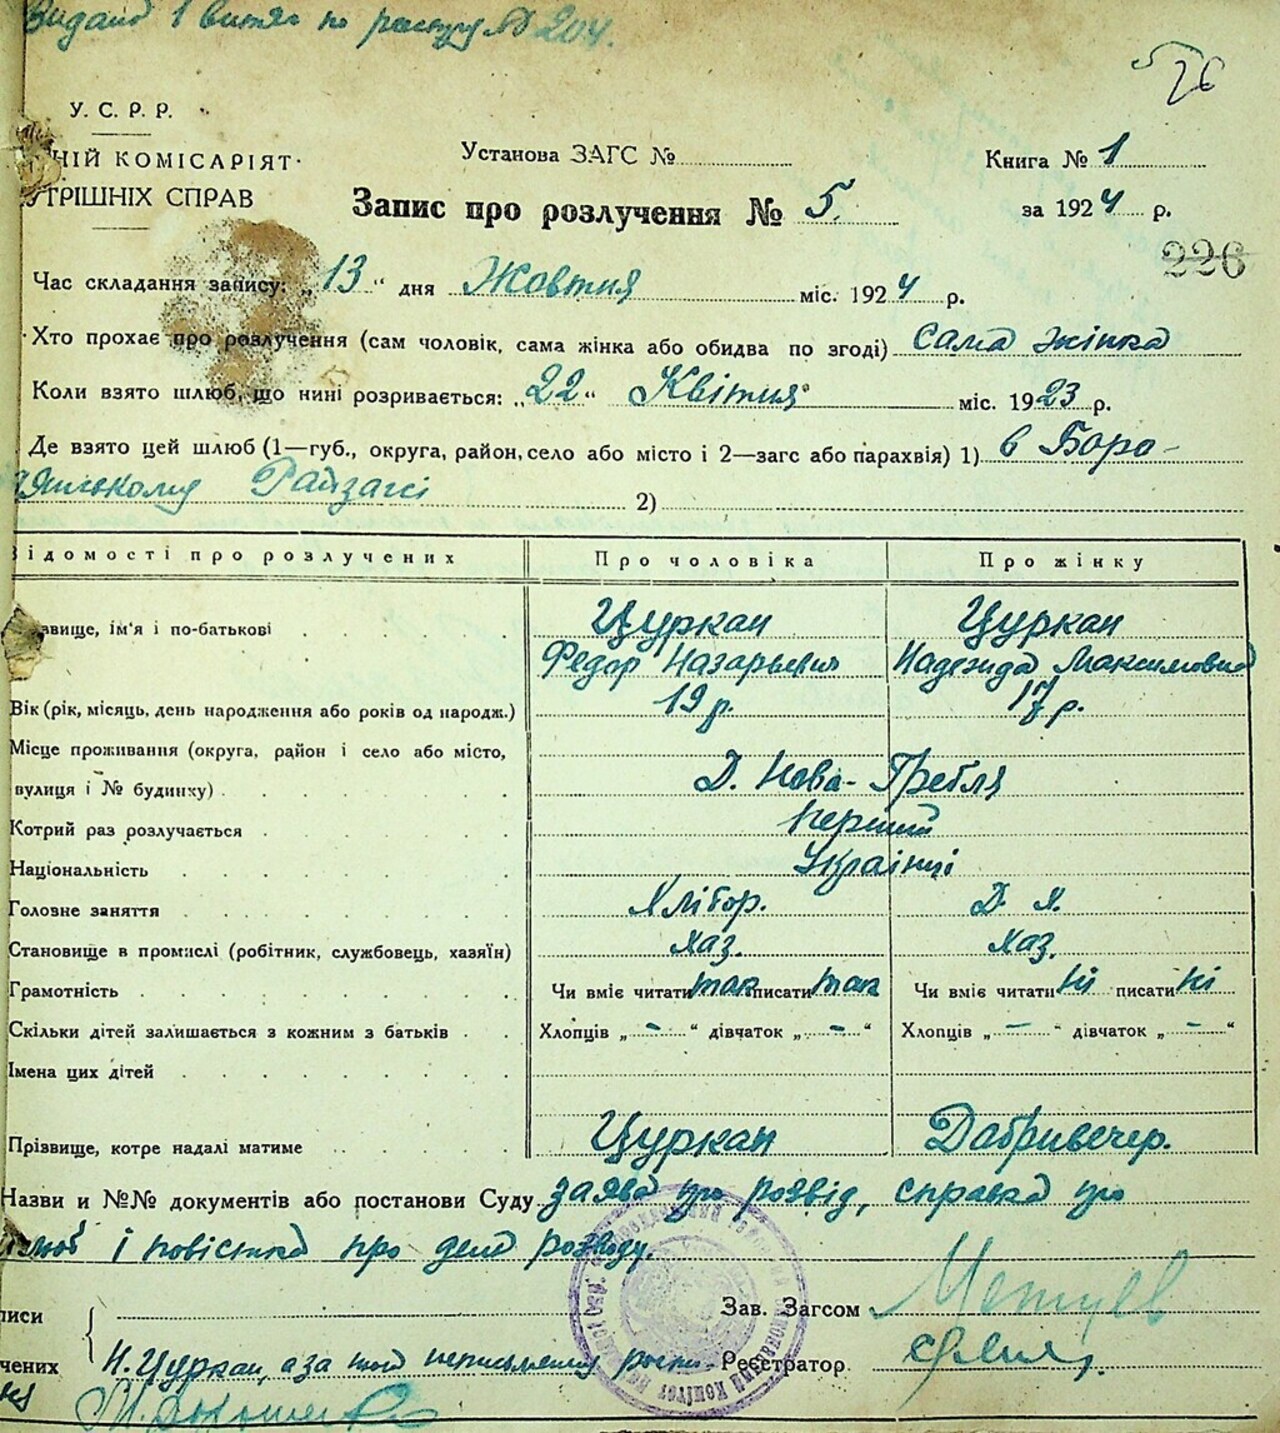 Видано 1 витяг по реєстру № 204.
У. С. Р. Р.
НІЙ КОМІСАРІЯТ
УТРІШНІХ СПРАВ
Установа ЗАГС №
Книга № 1
Запис про розлучення № 5.
за 1924 р.
226
Час складання запису: „13“ дня Жовтня міс. 1924 р.
Хто прохає про розлучення (сам чоловік, сама жінка або обидва по згоді) сама жінка
Коли взято шлюб, що нині розривається: „22“ Квітня міс. 1923 р.
Де взято цей шлюб (1—губ., округа, район, село або місто і 2—загс або парахвія) 1) в Боро-
дянському Райзагсі 2)
Відомості про розлучених Про чоловіка Про жінку
звище, ім'я і по-батькові Цуркан Цуркан
Федор Назарьевич Надежда Максимовна
Вік (рік, місяць, день народження або років од народж.) 19 р. 17 р.
Місце проживання (округа, район і село або місто,
вулиця і № будинку) Д. Нова-Гребля
Котрий раз розлучається перший
Національність Українці
Головне заняття Хлібор. Д. Х.
Становище в промислі (робітник, службовець, хазяїн) хаз. хаз.
Грамотність Чи вміє читати так писати так Чи вміє читати ні писати ні
Скільки дітей залишається з кожним з батьків Хлопців „ - “ дівчаток „ - “ Хлопців „ - “ дівчаток „ - “
Імена цих дітей
Прізвище, котре надалі матиме Цуркан Добривечер.
Назви и №№ документів або постанови Суду заява про розвід, справка про
шлюб і повістка про дело розводу.
писи Зав. Загсом
чених Н. Цуркан, а за неї неписьменну Реєстратор